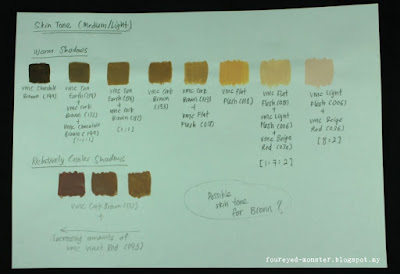 Skin Tone (Medium/Light)
Warm Shadows
vmc Chocolate
Brown (149)
vmc Tan
Earth (154)
+
vmc Cork
Brown (133)
+
vmc Chocolate
Brown (149)
vmc Tan
Earth (154)
+
vmc Cork
Brown (133)
[1:1]
vmc Cork
Brown (133)
vmc Cork
Brown (133)
+
vmc Flat
Flesh (018)
vmc Flat
Flesh (018)
vmc Flat
Flesh (018)
+
vmc Light
Flesh (006)
+
vmc Beige
Red (036)
vmc Light
Flesh (006)
+
vmc Beige
Red (036)
[8:2]
Relatively Cooler Shadows
vmc Cork Brown (133)
+
Increasing amounts of
vmc Violet Red
Possible
skin tone
for Bronn?
foureyed-monster.blogspot.my